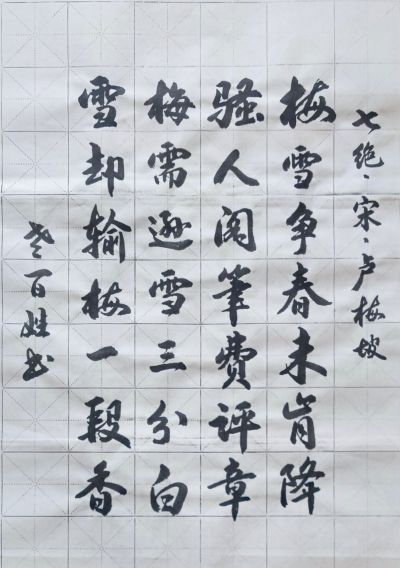 七绝·宋·卢梅坡
梅雪争春未肯降
骚人阁笔费评章
梅需逊雪三分白
雪却输梅一段香
老百姓书